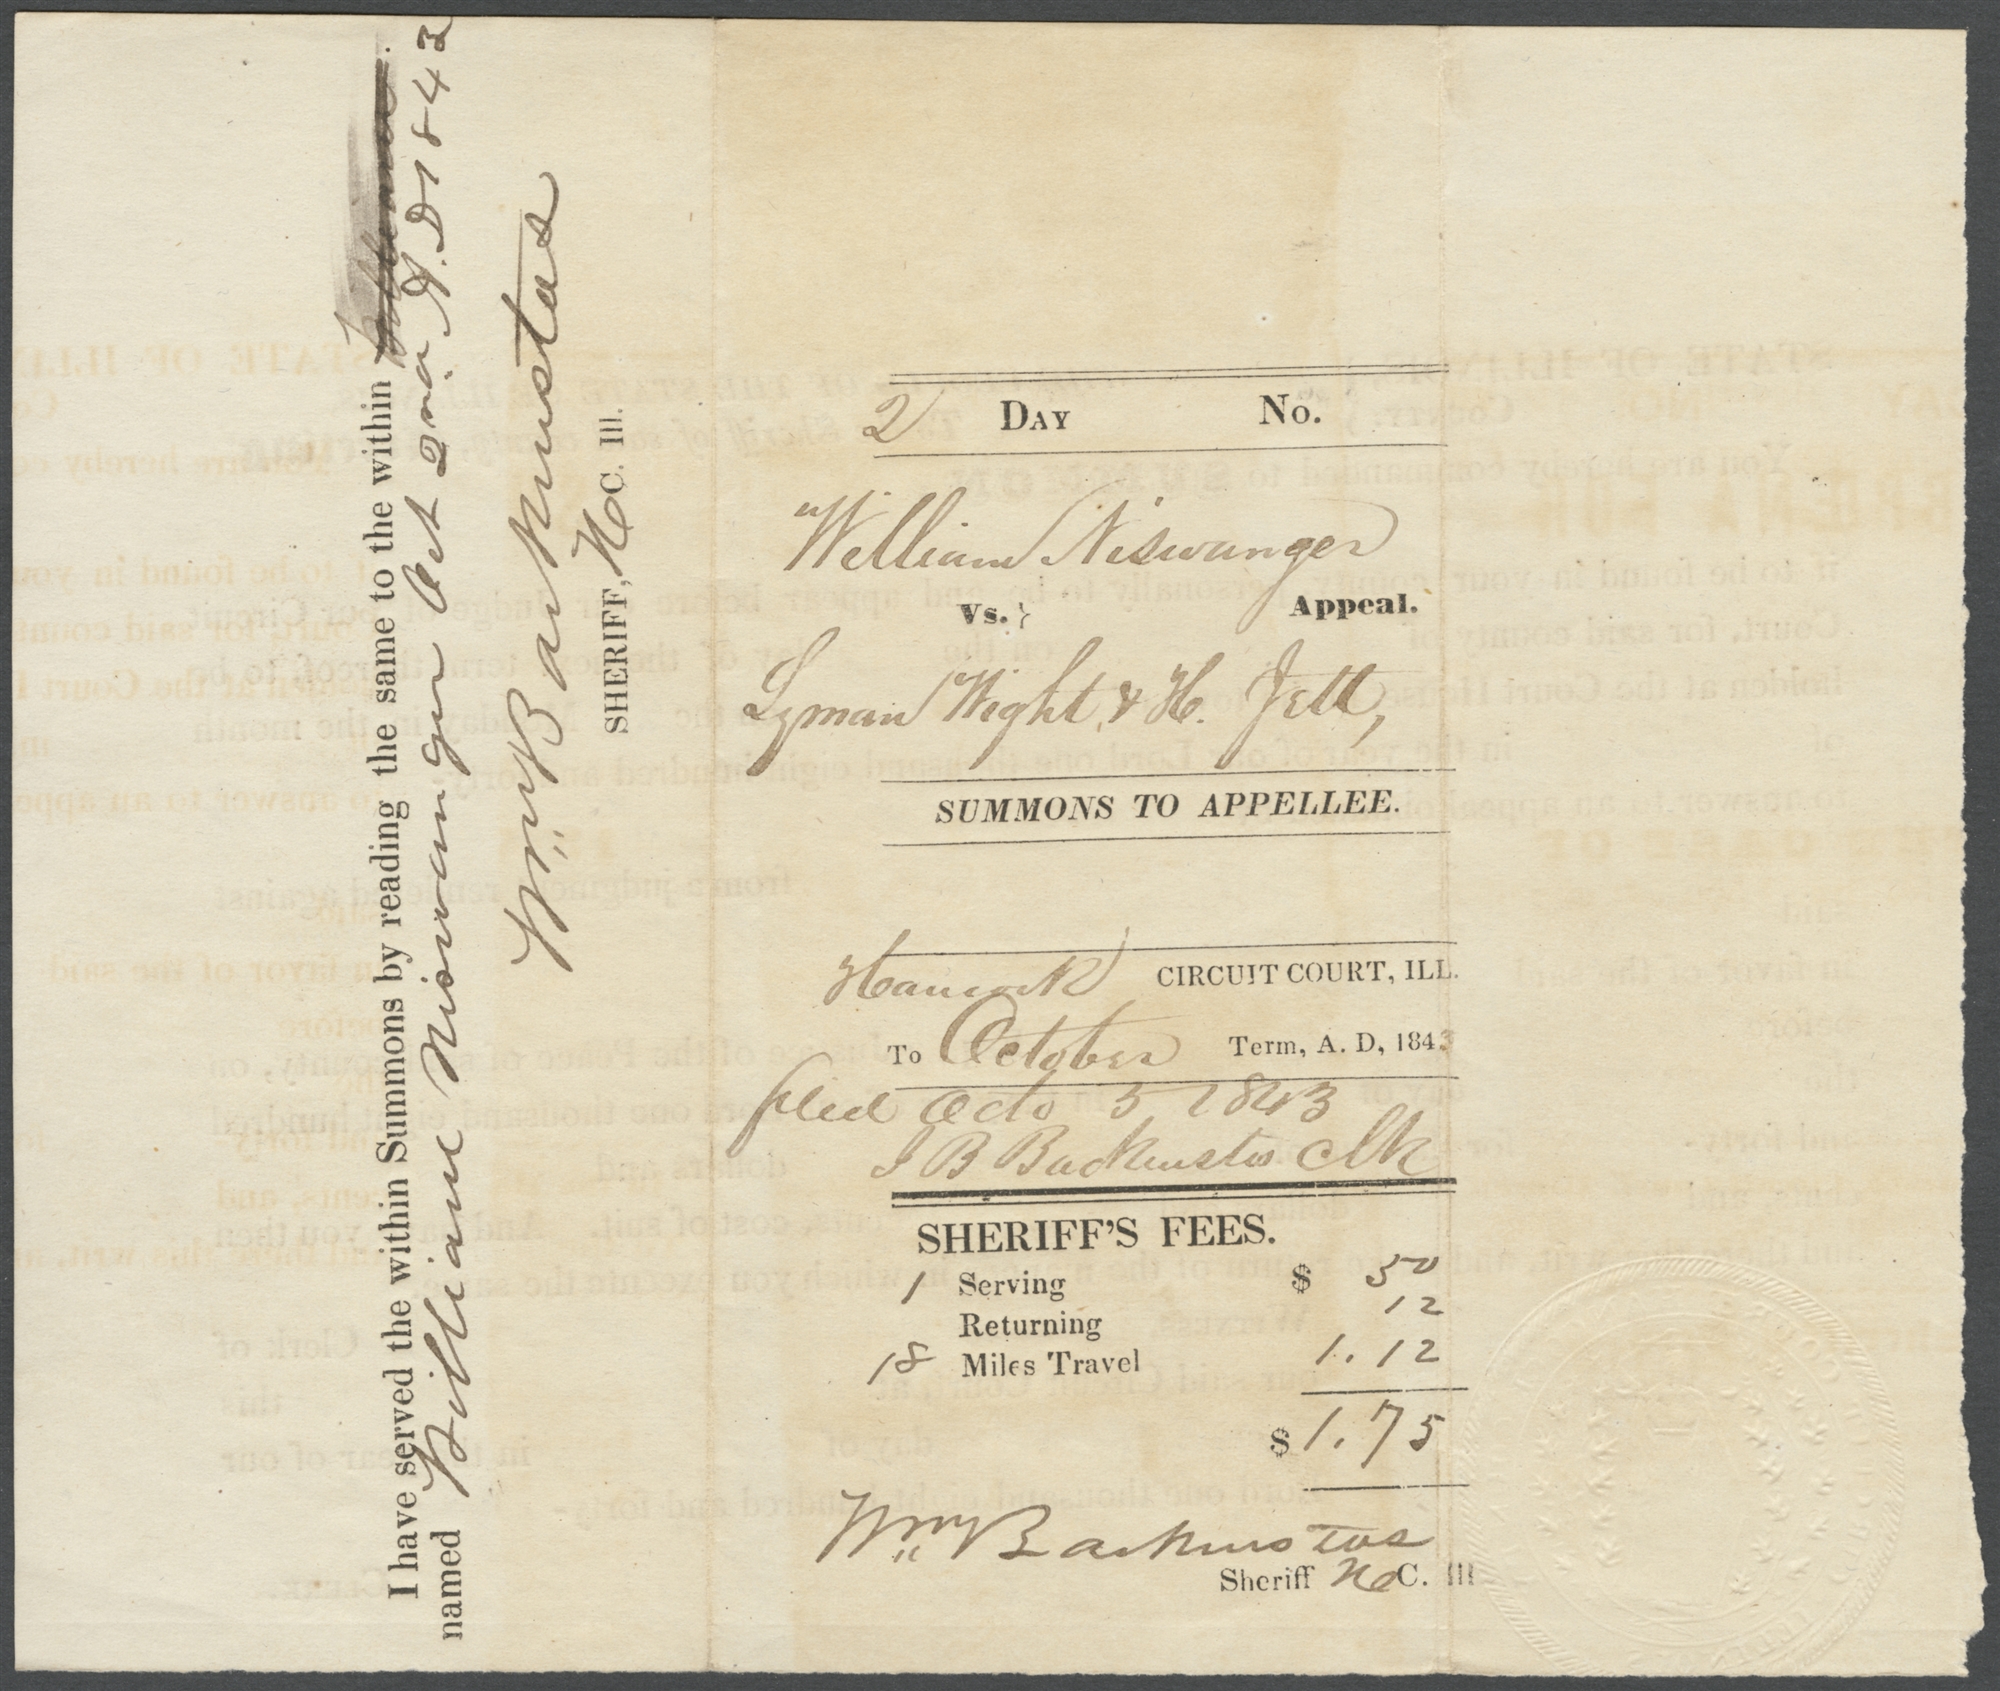 I have served the within Summons by reading the same to the within
named William Niswanger Oct 2nd A.D 1843
Wm Backenstos
SHERIFF, H C. Ill.
2 DAY No.
William Niswanger
Vs. } Appeal.
Lyman Wight & H. Jett,
SUMMONS TO APPELLEE.
Hancock CIRCUIT COURT, ILL.
To October Term, A. D, 1843
filed Octo 5 1843
J B Backenstos Clk
SHERIFF'S FEES.
1 Serving $ 50
Returning 12
18 Miles Travel 1.12
$ 1.75
Wm Backenstos
Sheriff H C. Ill